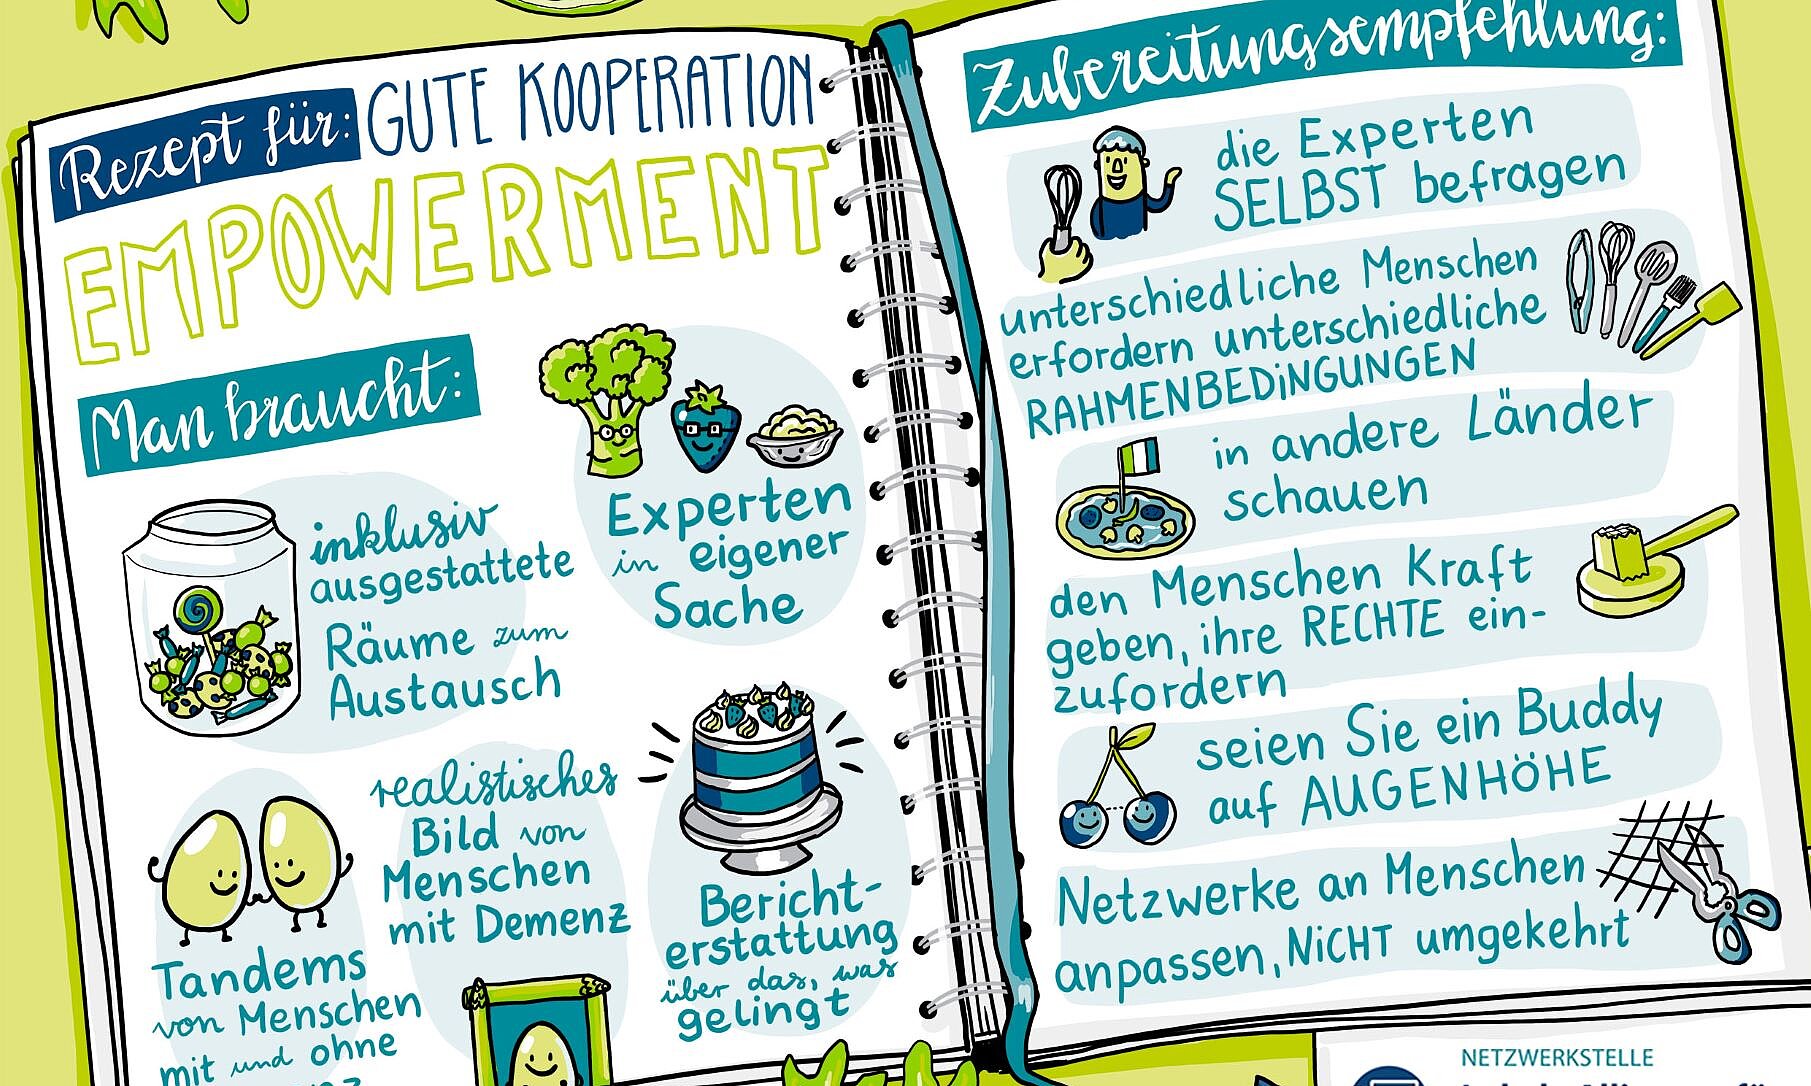 Rezept für: GUTE KOOPERATION
EMPOWERMENT
Man braucht:
Experten
in eigener
Sache
inklusiv
ausgestattete
Räume zum
Austausch
realistisches
Bild von
Menschen
mit Demenz
Bericht-
erstattung
über das, was
gelingt
Tandems
von Menschen
mit und ohne
Zubereitungsempfehlung:
die Experten
SELBST befragen
unterschiedliche Menschen
erfordern unterschiedliche
RAHMENBEDINGUNGEN
in andere Länder
schauen
den Menschen Kraft
geben, ihre RECHTE ein-
zufordern
seien Sie ein Buddy
auf AUGENHÖHE
Netzwerke an Menschen
anpassen, NICHT umgekehrt
NETZWERKSTELLE